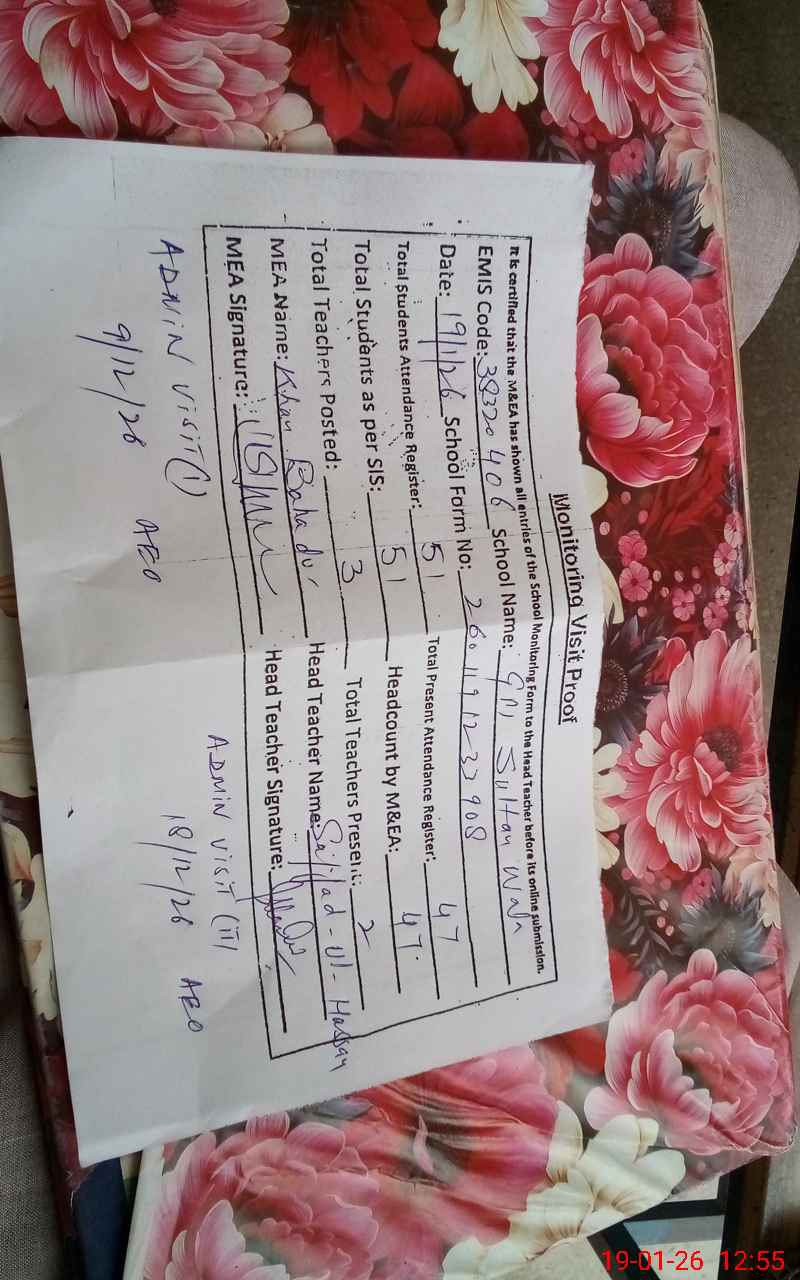 Monitoring Visit Proof
It is certified that the M&EA has shown all entries of the School Monitoring Form to the Head Teacher before its online submission.
EMIS Code: 38320406 School Name: Sultan Wala
Date: 19/1/26 School Form No:
Total Students Attendance Register: 51 Total Present Attendance Register: 47
Total Students as per SIS: 51 Headcount by M&EA: 47
Total Teachers Posted: 3 Total Teachers Present: 2
MEA Name: Khan Bahadur Head Teacher Name: Sajjad-ul-Hassan
MEA Signature: Head Teacher Signature:
ADMIN VISIT (I)
9/12/26 AEO
ADMIN VISIT (II)
18/12/26 AEO
19-01-26 12:55